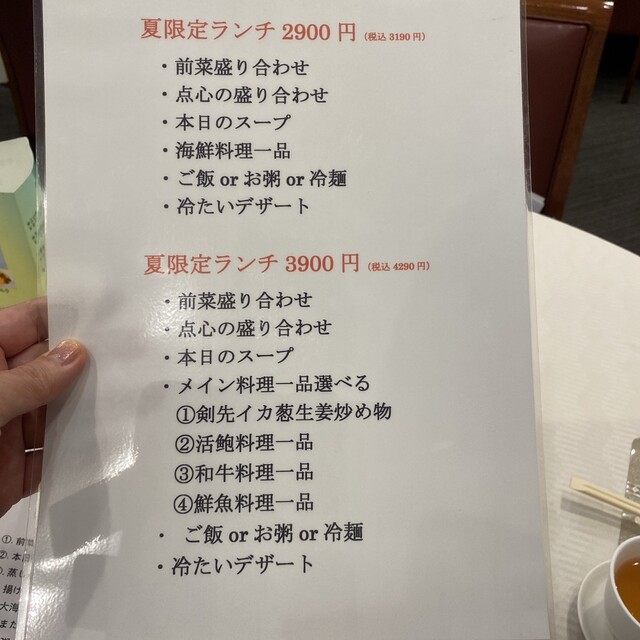 夏限定ランチ 2900 円（税込 3190 円）
・前菜盛り合わせ
・点心の盛り合わせ
・本日のスープ
・海鮮料理一品
・ご飯 or お粥 or 冷麺
・冷たいデザート
夏限定ランチ 3900 円（税込 4290 円）
・前菜盛り合わせ
・点心の盛り合わせ
・本日のスープ
・メイン料理一品選べる
①剣先イカ葱生姜炒め物
②活鮑料理一品
③和牛料理一品
④鮮魚料理一品
・ ご飯 or お粥 or 冷麺
・冷たいデザート
①. 前
②. 本日
蒸し
揚げ
大海
また